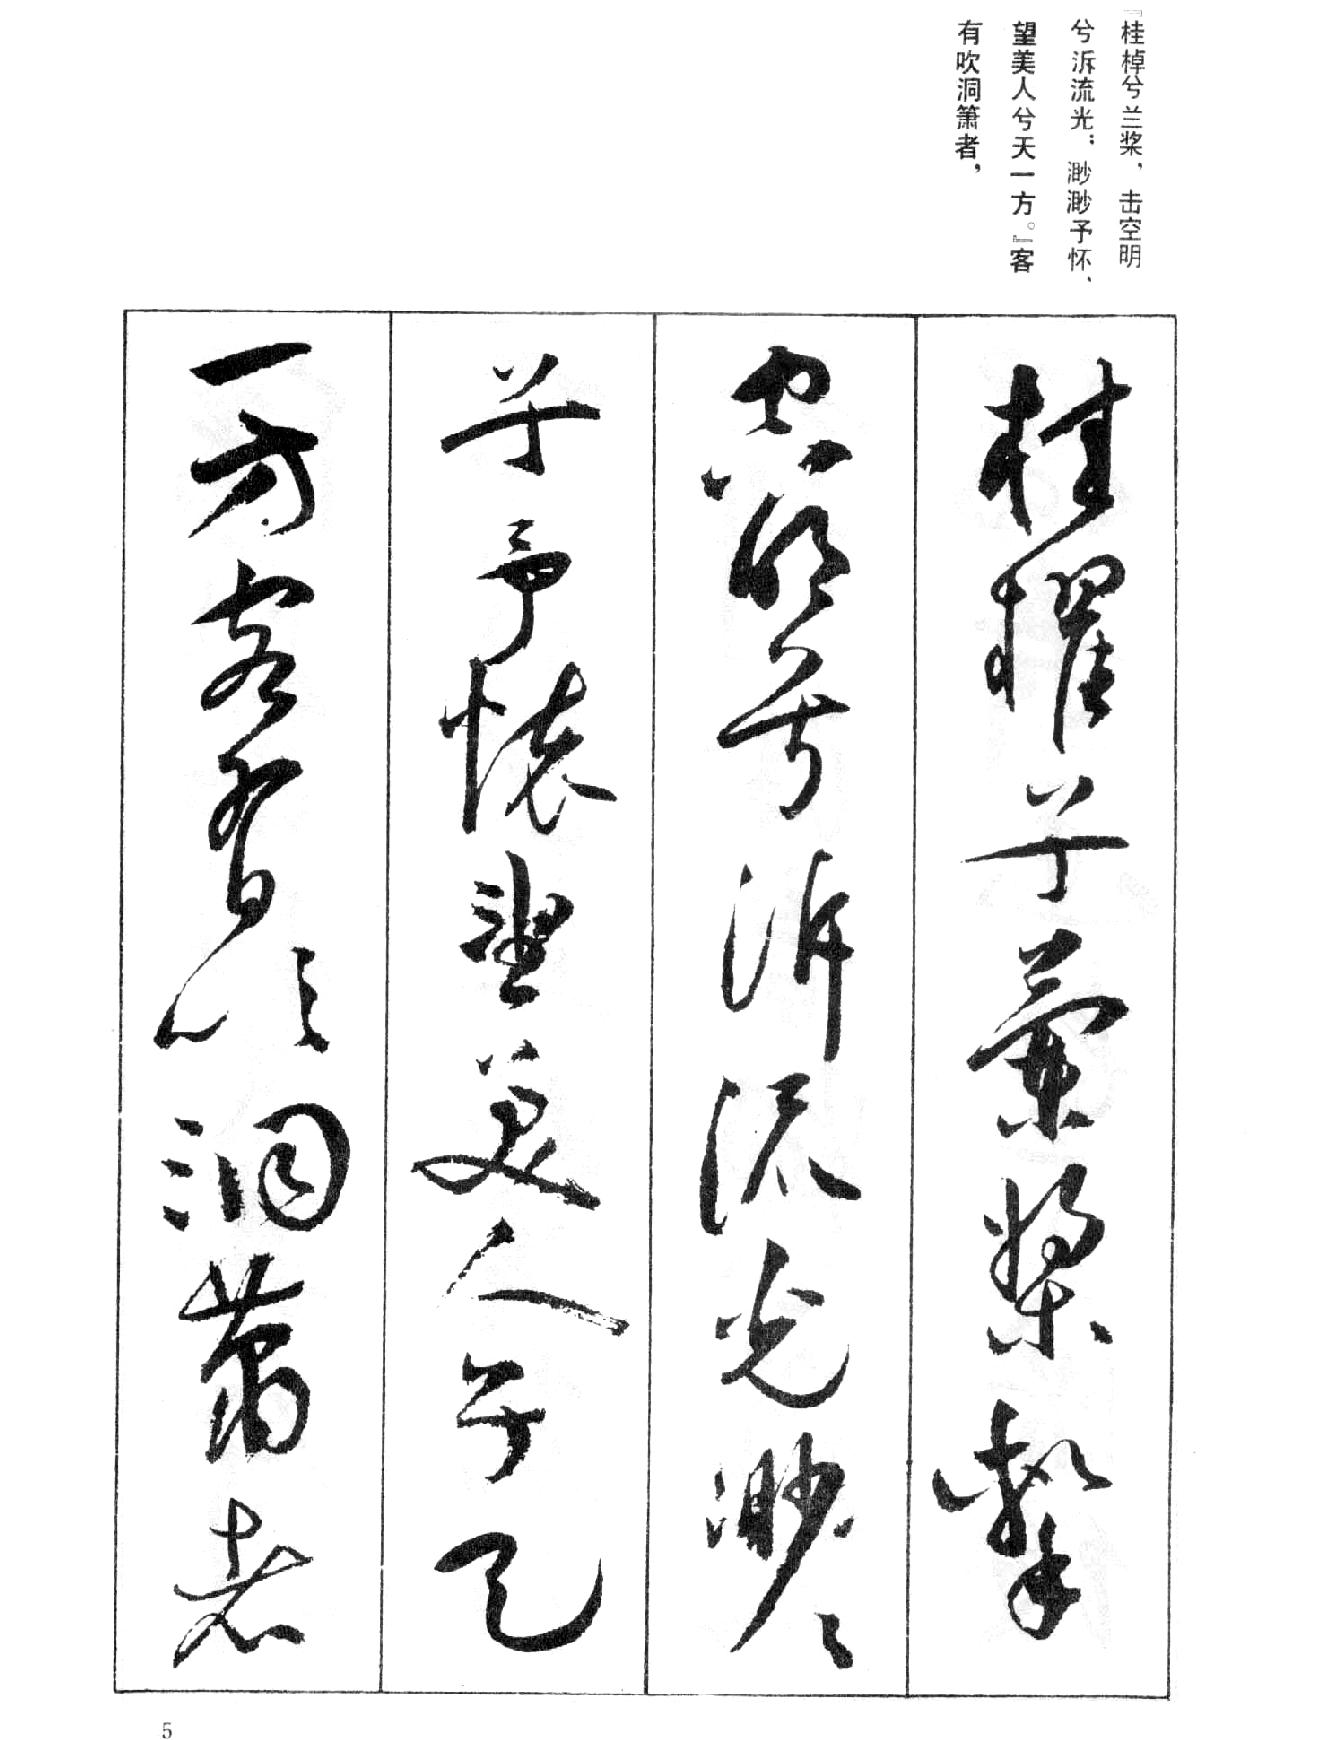 『桂棹兮兰桨，击空明
兮泝流光；渺渺予怀、
望美人兮天一方。』客
有吹洞箫者，
桂櫂兮蘭槳擊
空明兮泝流光渺々
兮予懷望美人兮天
一方客有吹洞簫者
5